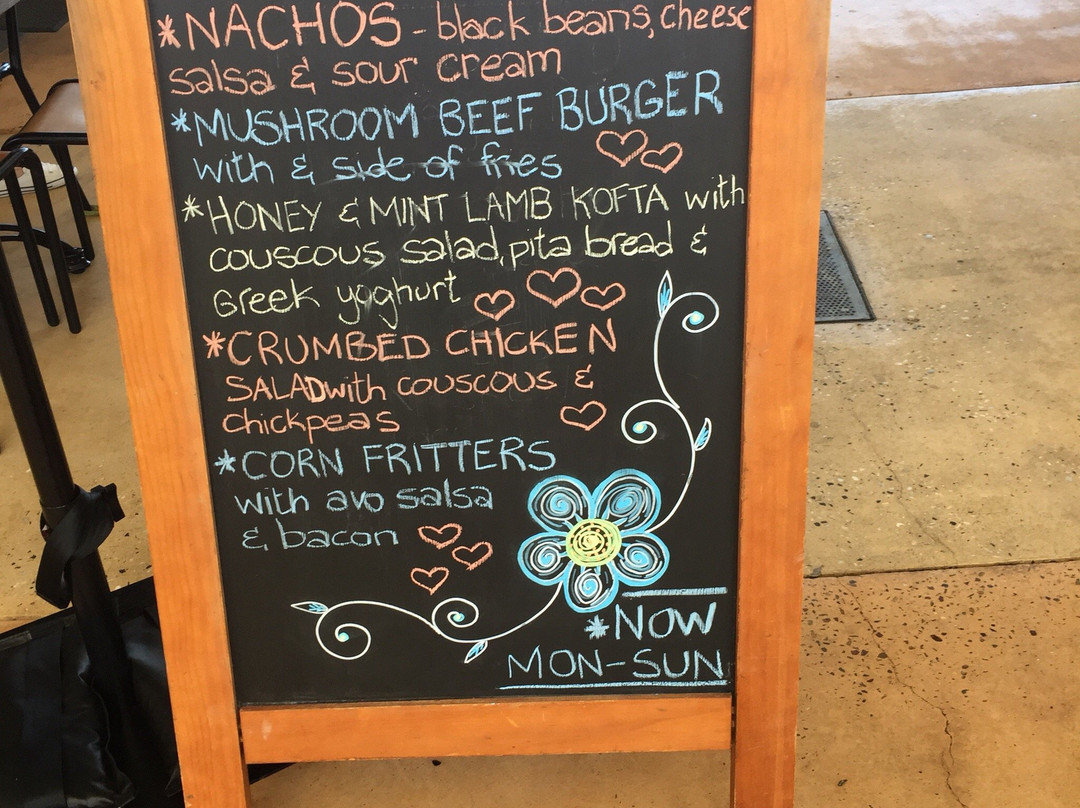 *NACHOS - black beans, cheese
salsa & sour cream
*MUSHROOM BEEF BURGER
with & side of fries
*HONEY & MINT LAMB KOFTA with
couscous salad, pita bread &
Greek yoghurt
*CRUMBED CHICKEN
SALAD with couscous &
chickpeas
*CORN FRITTERS
with avo salsa
& bacon
*NOW
MON-SUN